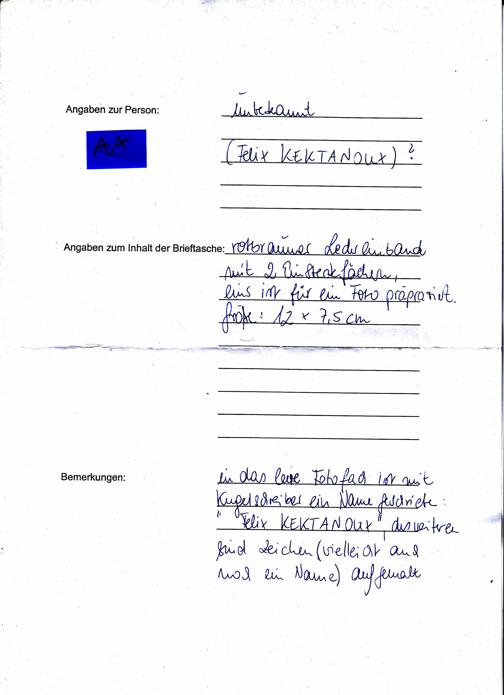 Angaben zur Person:
unbekannt
AA
(Felix KEKTANOUX)?
Angaben zum Inhalt der Brieftasche:
rotbrauner Ledereinband
mit 2 Einsteckfächern,
eins ist für ein Foto präpariert.
Größe: 12 x 7,5 cm
Bemerkungen:
in das leere Fotofach ist mit
Kugelschreiber ein Name geschrieben:
"Felix KEKTANOUX", desweitren
sind Zeichen (vielleicht auch
noch ein Name) aufgemalt